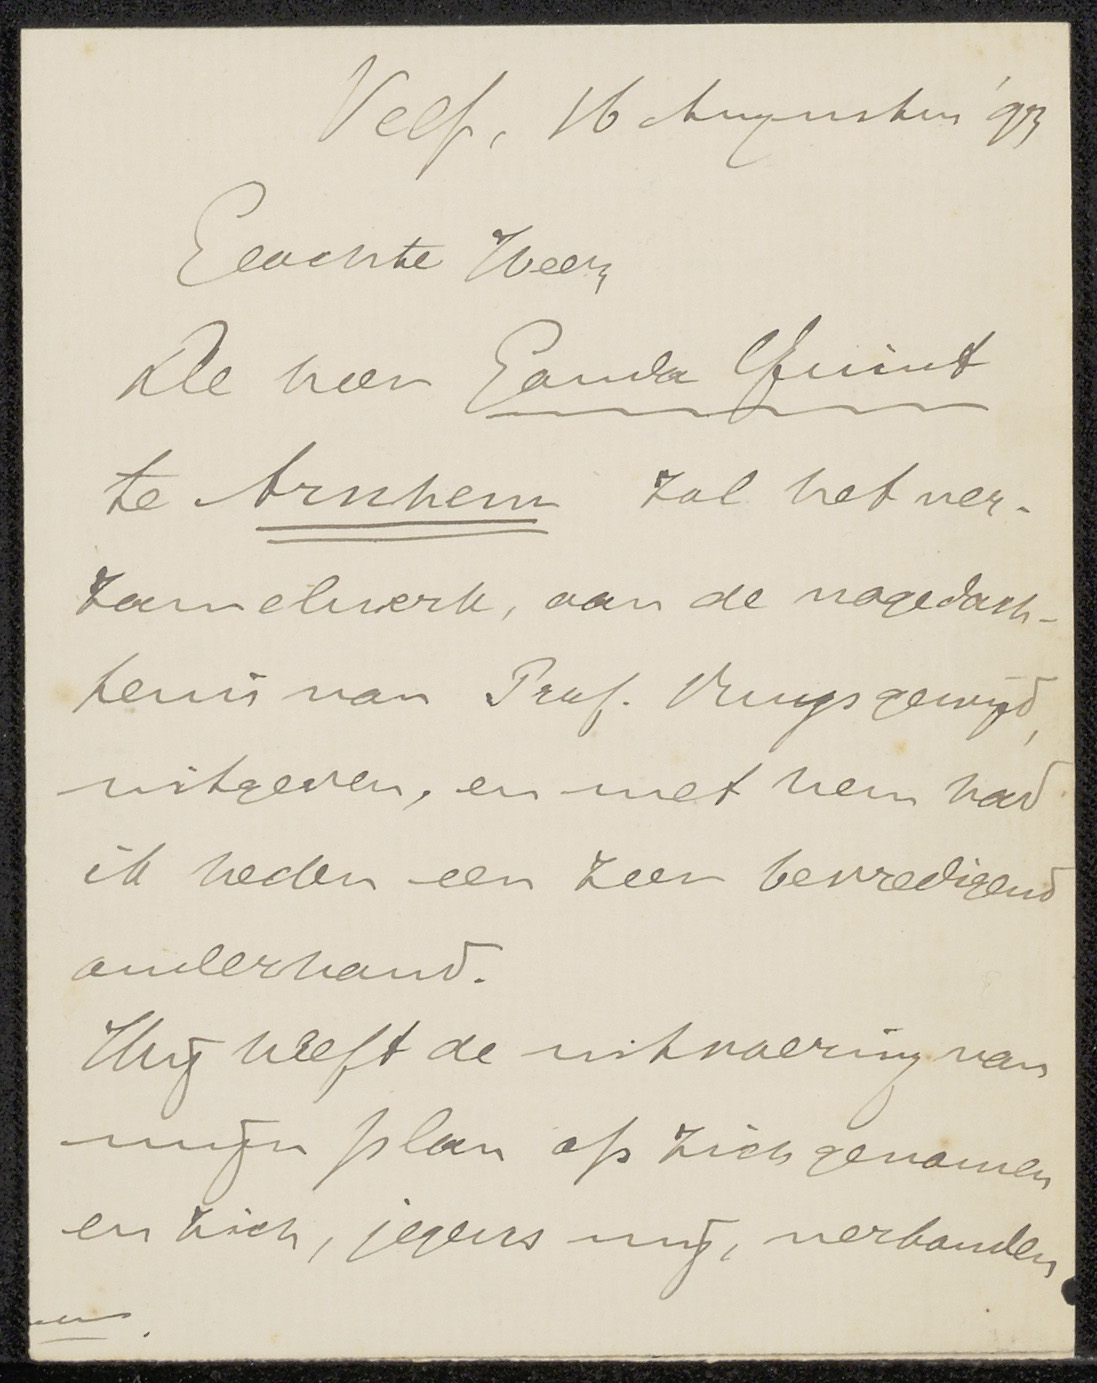 Velp, 16 Augustus '93
Geachte Heer,
De heer Gouda Quint
te Arnhem zal het ver-
zamelwerk, aan de nagedach-
tenis van Prof. Bruyn gewijd,
uitgeven, en met hem had
ik heden een zeer bevredigend
onderhoud.
Hij heeft de uitvoering van
mijn plan op zich genomen
en zich, jegens mij, verbonden